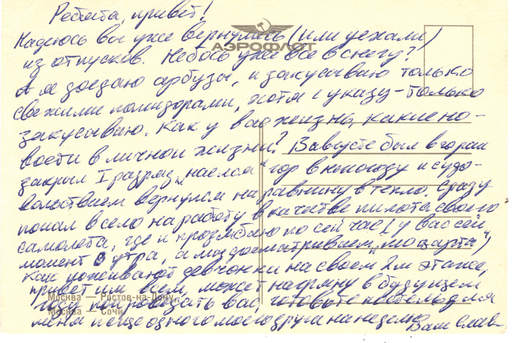 Ребята, привет!
Надеюсь вы уже вернулись (или уехали)
из отпусков. Небось уже все в снегу?
АЭРОФЛОТ
А я доедаю арбузы, и закусываю только
свежими помидорами, хотя к указу – только
закусываю. Как у вас жизнь, какие но-
вости в личной жизни? В августе был в горах
закрыл I разряд, наелся гор в и с удо-
вольствием вернулся на равнину в тепло. Сразу
попал в село на работу в качестве пилота своего
самолета, где и прозябаю по сей час (у вас сей
момент утра, а мы досматриваем
Как поживают девчонки на своем 2м этаже,
привет им всем, может надумаю в будущем
году навязать вас, готовьте для
меня и еще одного моего друга на неделю.
Ваш Слав
Москва — Ростов-на-Дону
Москва — Сочи